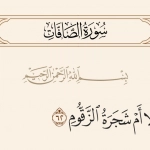 سُورَةُ الصَّافَّاتِ
بِسْمِ اللَّهِ الرَّحْمَٰنِ الرَّحِيمِ
أَمْ شَجَرَةُ الزَّقُّومِ ٦٢